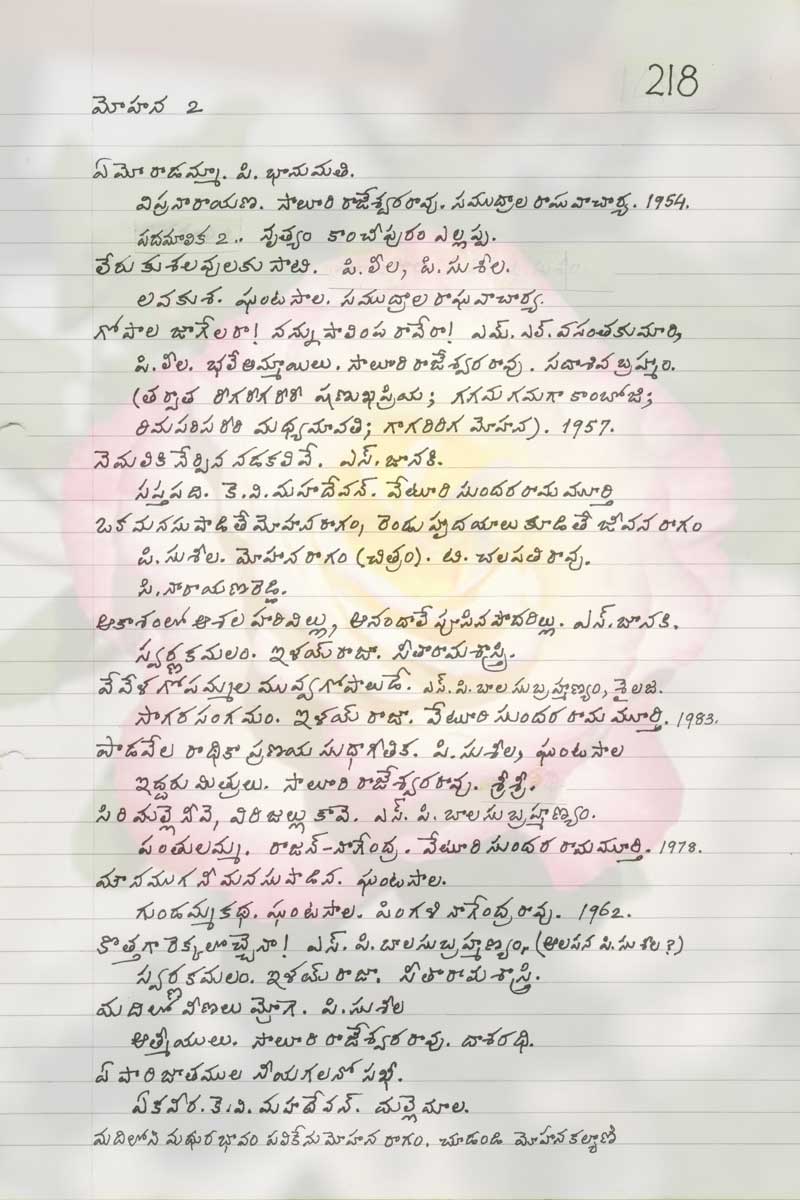 218
మోహన 2
ఏమో రాడమ్మా. పి. భానుమతి.
విప్రనారాయణ. సాలూరి రాజేశ్వరరావు. సముద్రాల రాఘవాచార్య. 1954.
పదమాలిక 2.. నృత్యం కాంచీపురం ఎల్లప్ప.
లేరు కుశలవులకు సాటి. పి.లీల, పి.సుశీల.
లవకుశ. ఘంటసాల. సముద్రాల రాఘవాచార్య.
గోపాల జాగేలరా! నన్ను పాలింప రావేరా! ఎమ్.ఎల్.వసంతకుమారి,
పి.లీల. భలేఅమ్మాయిలు. సాలూరి రాజేశ్వరరావు. సదాశివ బ్రహ్మం.
(తర్వాత రిగరిగరిరి షణ్ముఖప్రియ; గగమగమగా కాంబోజి;
రిమపరిపరిరి మధ్యమావతి; గాగరిరిగ మోహన). 1957.
నెమలికి నేర్పిన నడకలివే. ఎస్.జానకి.
సప్తపది. కె.వి.మహదేవన్. వేటూరి సుందరరామమూర్తి
ఒక మనసు పాడితే మోహనరాగం, రెండు హృదయాలు కూడితే జీవనరాగం
పి.సుశీల. మోహనరాగం (చిత్రం). టి.చలపతిరావు.
సి.నారాయణరెడ్డి.
ఆకాశంలో ఆశల హరివిల్లు, ఆనందాలే పూసినపొదరిల్లు. ఎస్.జానకి.
స్వర్ణకమలం. ఇళయ్ రాజా. సీతారామశాస్త్రి.
వేవేళ గోపెమ్మల మువ్వగోపాలుడే. ఎస్.పి.బాలసుబ్రహ్మణ్యం, శైలజ.
సాగరసంగమం. ఇళయ్ రాజా. వేటూరి సుందరరామమూర్తి. 1983.
పాడవేల రాధికా ప్రణయ సుధాగీతిక. పి.సుశీల, ఘంటసాల
ఇద్దరు మిత్రులు. సాలూరి రాజేశ్వరరావు. శ్రీశ్రీ.
సిరిమల్లె నీవె, విరిజల్లు కావె. ఎస్.పి.బాలసుబ్రహ్మణ్యం.
పంతులమ్మ. రాజన్-నాగేంద్ర. వేటూరి సుందర రామమూర్తి. 1978.
మౌనముగ నీ మనసు పాడిన. ఘంటసాల.
గుండమ్మకథ. ఘంటసాల. పింగళి నాగేంద్రరావు. 1962.
కొత్తగా రెక్కలొచ్చెనా! ఎస్.పి.బాలసుబ్రహ్మణ్యం, (ఆలాపన పి.సుశీల?)
స్వర్ణకమలం. ఇళయ్ రాజా. సీతారామశాస్త్రి.
మదిలో వీణలు మ్రోగె. పి.సుశీల
ఆత్మీయులు. సాలూరి రాజేశ్వరరావు. దాశరథి.
ఏ పారిజాతముల నీయగలనో సఖీ.
ఏకవీర. కె.వి.మహదేవన్. మల్లెమాల.
మదిలోని మధురభావం పలికేను మోహన రాగం. చూడండి మోహనకల్యాణి